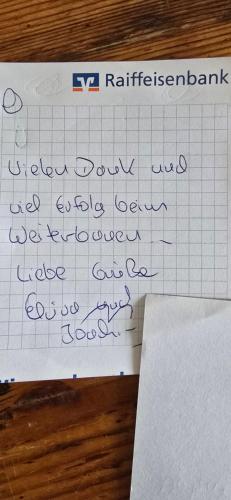 Raiffeisenbank
Vielen Dank und
viel Erfolg beim
Weiterbauen
Liebe Grüße